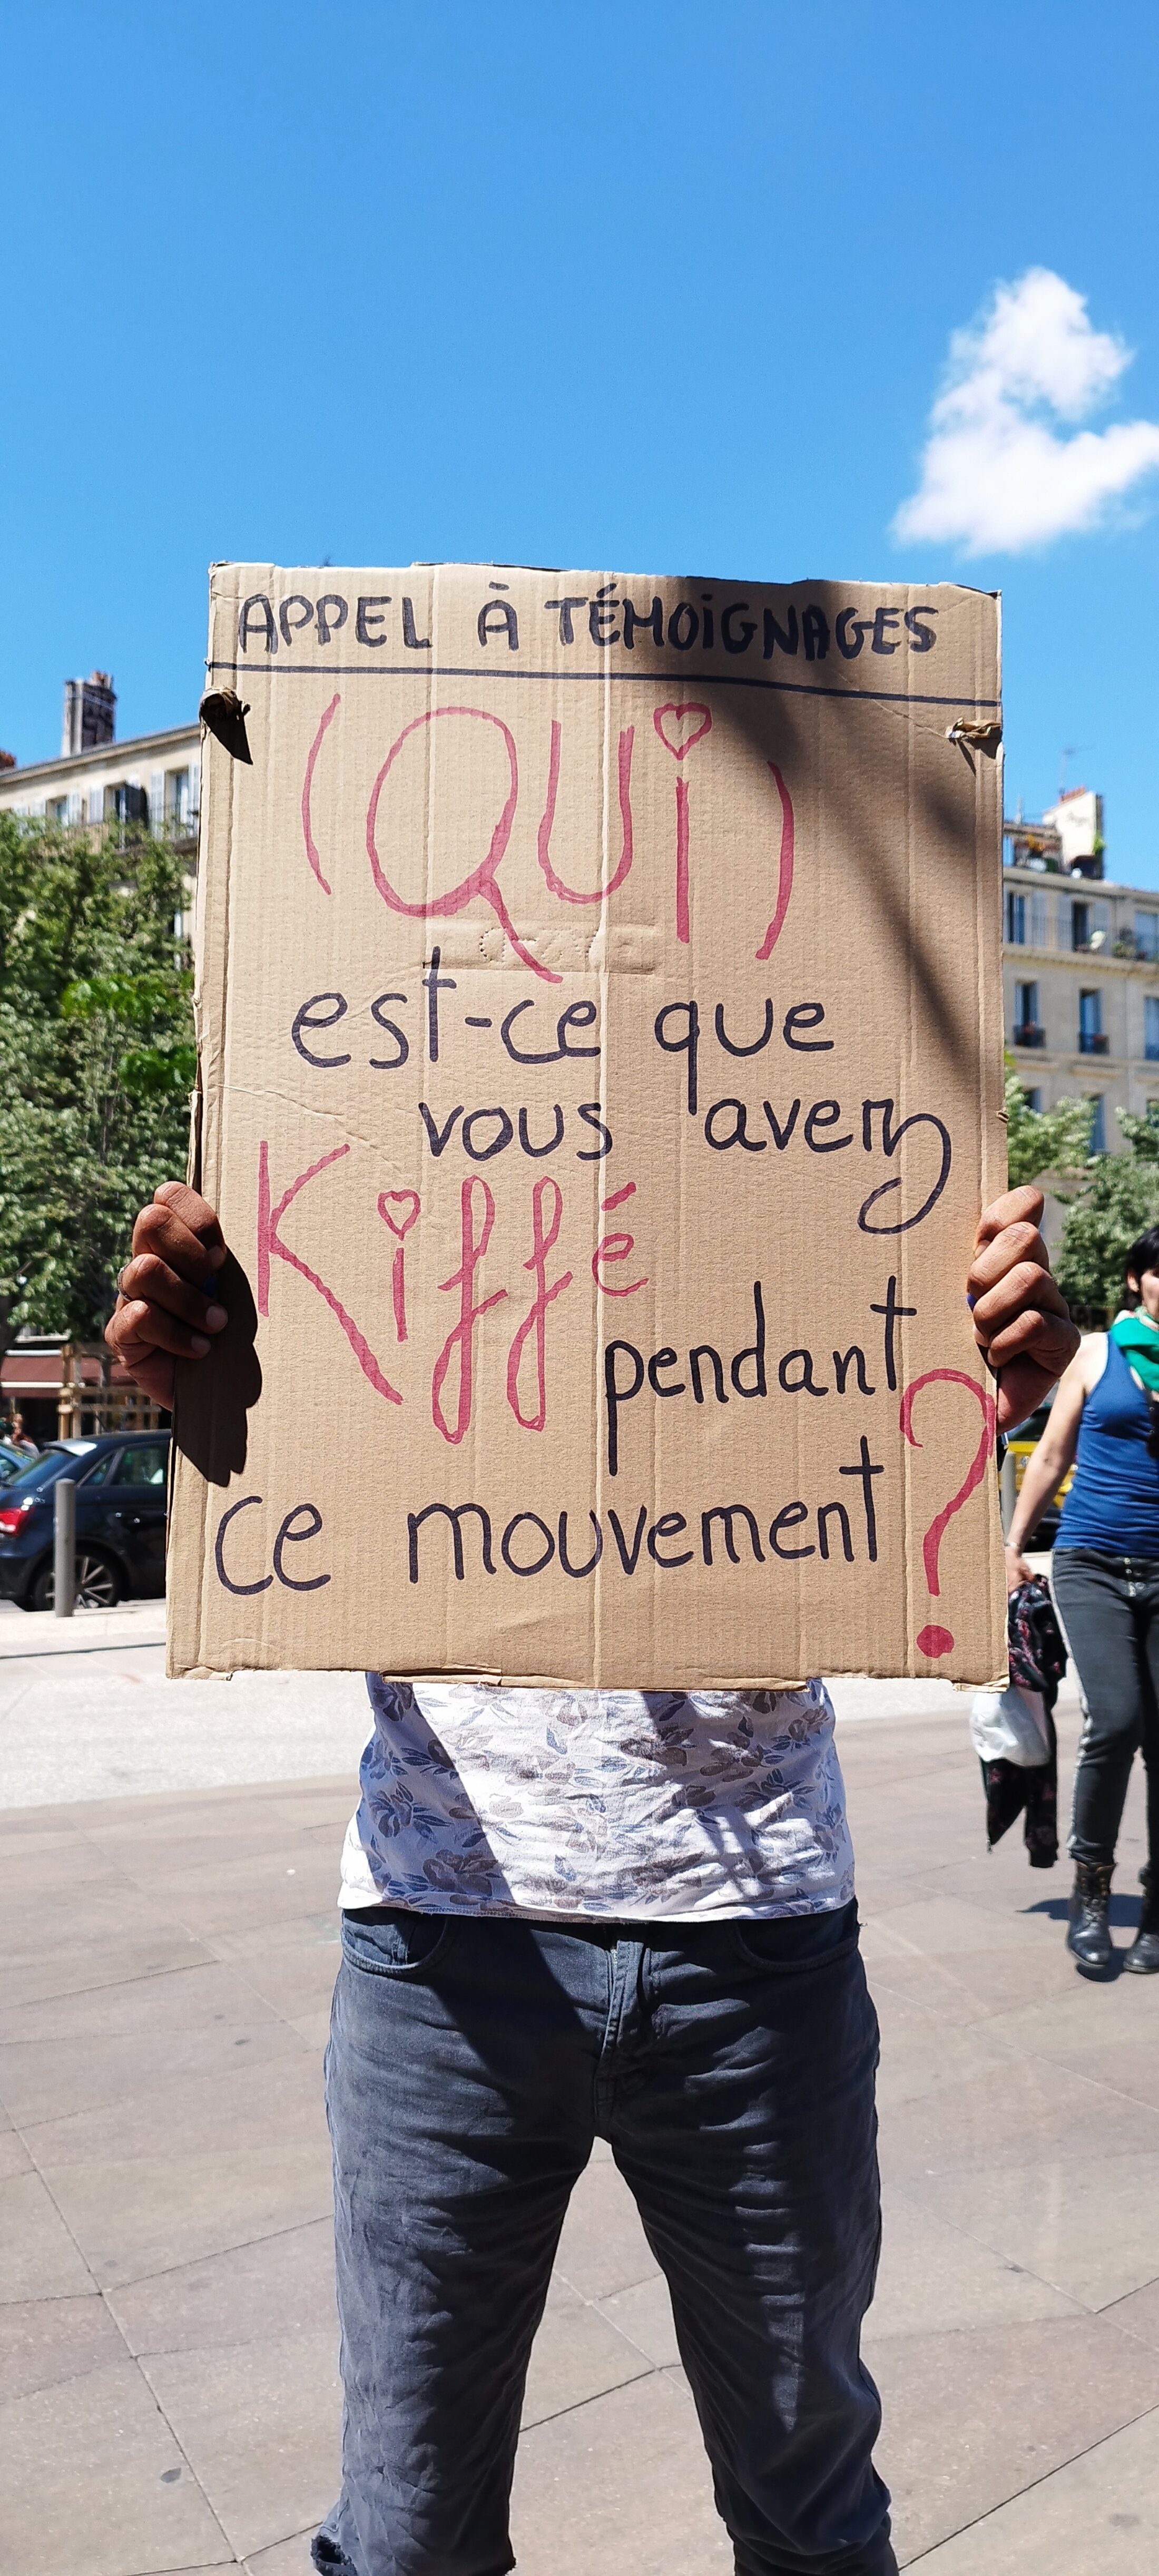 APPEL À TÉMOiGNAGES
(QUi)
est-ce que
vous avez
Kiffé
pendant
ce mouvement ?